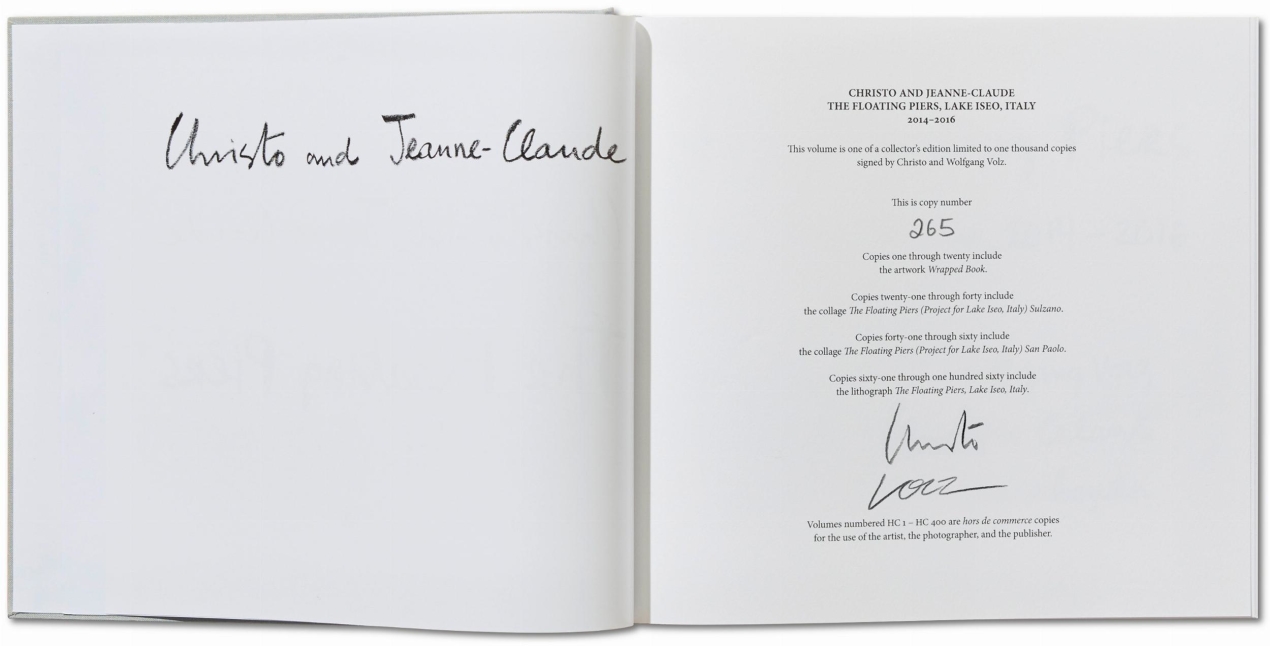 Christo and Jeanne-Claude
CHRISTO AND JEANNE-CLAUDE
THE FLOATING PIERS, LAKE ISEO, ITALY
2014–2016
This volume is one of a collector's edition limited to one thousand copies
signed by Christo and Wolfgang Volz.
This is copy number
265
Copies one through twenty include
the artwork Wrapped Book.
Copies twenty-one through forty include
the collage The Floating Piers (Project for Lake Iseo, Italy) Sulzano.
Copies forty-one through sixty include
the collage The Floating Piers (Project for Lake Iseo, Italy) San Paolo.
Copies sixty-one through one hundred sixty include
the lithograph The Floating Piers, Lake Iseo, Italy.
Christo
VOLZ
Volumes numbered HC 1 – HC 400 are hors de commerce copies
for the use of the artist, the photographer, and the publisher.